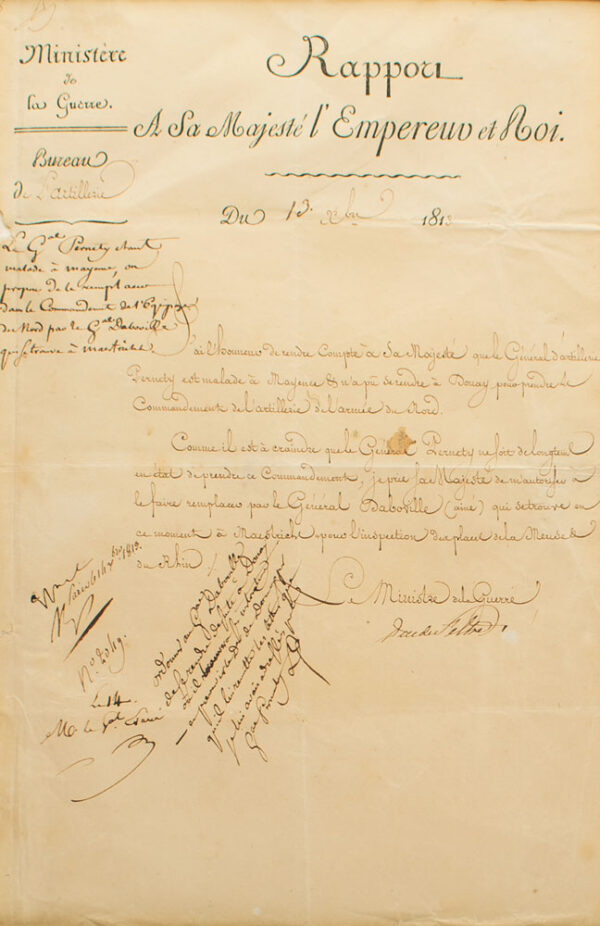 Ministère
de
la Guerre.
Bureau
de l'artillerie
Rapport
A Sa Majesté l'Empereur et Roi.
Du 13. Xbre 1813
Le Gal Pernety étant
malade à mayence, on
propose de le remplacer
dans le Commandement de l'Equipage
du Nord par le Gal Daboville
qui se trouve à maestricht
J'ai l'honneur de rendre Compte à Sa Majesté que le Général d'artillerie
Pernety est malade à Mayence & n'a pu se rendre à Douay pour prendre le
Commandement de l'artillerie de l'armée du Nord.
Comme il est à craindre que le Général Pernety ne soit de longtems
en état de prendre ce Commandement, je prie Sa Majesté de m'autoriser à
le faire remplacer par le Général Daboville (ainé) qui se trouve en
ce moment à Maestricht pour l'inspection des places de la Meuse &
du Rhin /.
Le Ministre de la Guerre
Duc de Feltre
Paris le 14 Xbre 1813.
N
No. 2049.
Le 14
M. le Gal
ordonner au Gal Daboville
de se rendre de suite à Douay